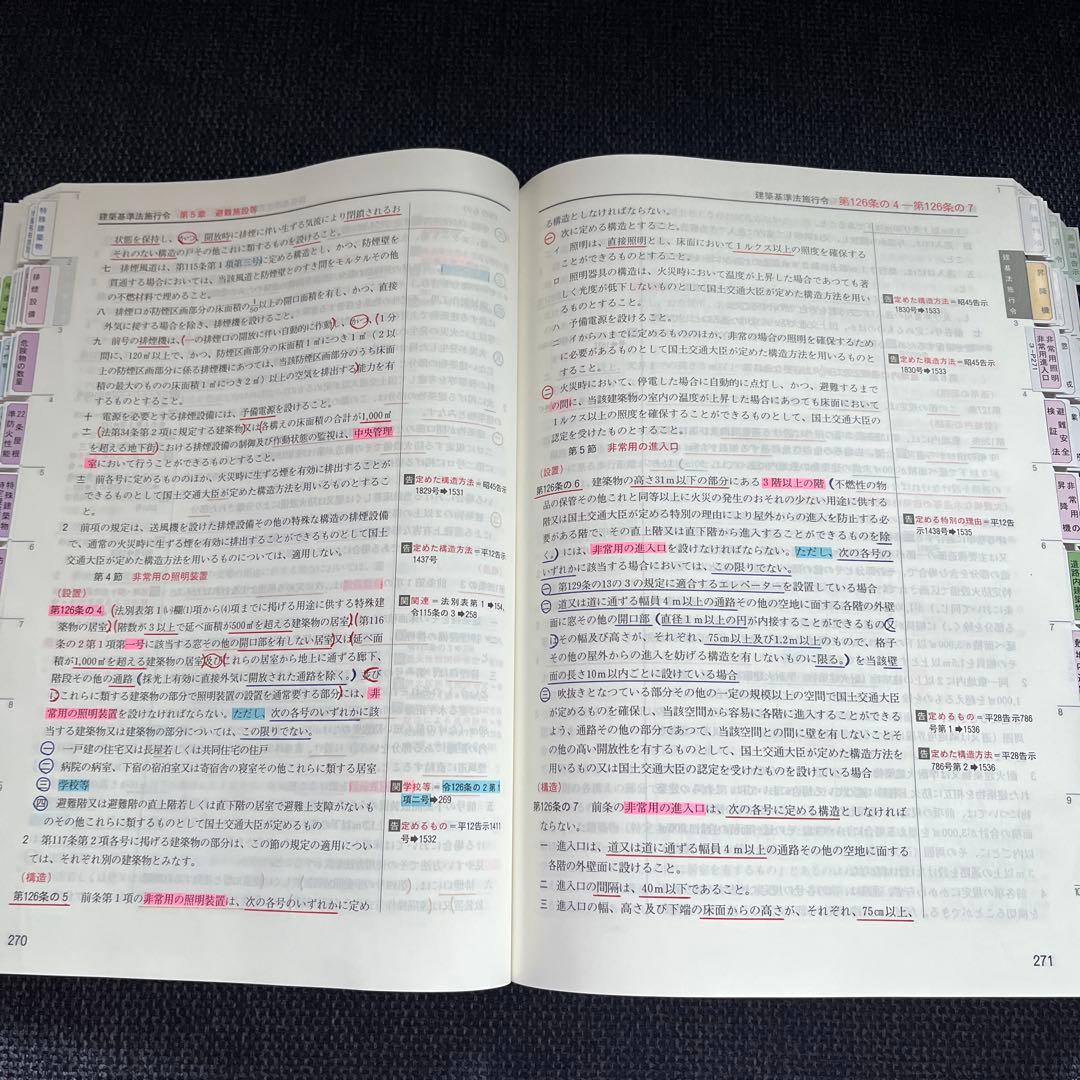 建築基準法施行令 第5章 避難施設等
状態を保持し、かつ、開放時に排煙に伴い生ずる気流により閉鎖されるお
それのない構造の戸その他これに類するものを設けること。
七 排煙風道は、第115条第1項第三号に定める構造とし、かつ、防煙壁を
貫通する場合においては、当該風道と防煙壁とのすき間をモルタルその他
の不燃材料で埋めること。
八 排煙口が防煙区画部分の床面積の1/50以上の開口面積を有し、かつ、直接
外気に接する場合を除き、排煙機を設けること。
九 前号の排煙機は、一の排煙口の開放に伴い自動的に作動し、かつ、1分
間に、120㎥以上で、かつ、防煙区画部分の床面積1㎡につき1㎥（2以
上の防煙区画部分に係る排煙機にあつては、当該防煙区画部分のうち床面
積の最大のものの床面積1㎡につき2㎥）以上の空気を排出する能力を有
するものとすること。
十 電源を必要とする排煙設備には、予備電源を設けること。
十一 法第34条第2項に規定する建築物又は各構えの床面積の合計が1,000㎡
を超える地下街における排煙設備の制御及び作動状態の監視は、中央管理
室において行うことができるものとすること。
十二 前各号に定めるもののほか、火災時に生ずる煙を有効に排出することが
できるものとして国土交通大臣が定めた構造方法を用いるものとするこ
と。
告定めた構造方法＝昭45告示
1829号➡1531
2 前項の規定は、送風機を設けた排煙設備その他の特殊な構造の排煙設備
で、通常の火災時に生ずる煙を有効に排出することができるものとして国土
交通大臣が定めた構造方法を用いるものについては、適用しない。
告定めた構造方法＝平12告示
1437号
第4節 非常用の照明装置
（設置）
第126条の4 法別表第1(い)欄(1)項から(4)項までに掲げる用途に供する特殊建
築物の居室、階数が3以上で延べ面積が500㎡を超える建築物の居室、第116
条の2第1項第一号に該当する窓その他の開口部を有しない居室又は延べ面
積が1,000㎡を超える建築物の居室及びこれらの居室から地上に通ずる廊下、
階段その他の通路（採光上有効に直接外気に開放された通路を除く。）並び
にこれらに類する建築物の部分で照明装置の設置を通常要する部分には、非
常用の照明装置を設けなければならない。ただし、次の各号のいずれかに該
当する建築物又は建築物の部分については、この限りでない。
関関連＝法別表第1➡154、
令115条の3➡258
一 一戸建の住宅又は長屋若しくは共同住宅の住戸
二 病院の病室、下宿の宿泊室又は寄宿舎の寝室その他これらに類する居室
三 学校等
関学校等＝令126条の2第1
項二号➡269
四 避難階又は避難階の直上階若しくは直下階の居室で避難上支障がないも
のその他これらに類するものとして国土交通大臣が定めるもの
告定めるもの＝平12告示1411
号➡1532
2 第117条第2項各号に掲げる建築物の部分は、この節の規定の適用につい
ては、それぞれ別の建築物とみなす。
（構造）
第126条の5 前条第1項の非常用の照明装置は、次の各号のいずれかに定め
270
建築基準法施行令 第126条の4―第126条の7
る構造としなければならない。
一 次に定める構造とすること。
イ 照明は、直接照明とし、床面において1ルクス以上の照度を確保する
ことができるものとすること。
ロ 照明器具の構造は、火災時において温度が上昇した場合であつても著
しく光度が低下しないものとして国土交通大臣が定めた構造方法を用い
るものとすること。
告定めた構造方法＝昭45告示
1830号➡1533
ハ 予備電源を設けること。
ニ イからハまでに定めるもののほか、非常の場合の照明を確保するため
に必要があるものとして国土交通大臣が定めた構造方法を用いるものと
すること。
告定めた構造方法＝昭45告示
1830号➡1533
二 火災時において、停電した場合に自動的に点灯し、かつ、避難するまで
の間に、当該建築物の室内の温度が上昇した場合にあつても床面において
1ルクス以上の照度を確保することができるものとして、国土交通大臣の
認定を受けたものとすること。
第5節 非常用の進入口
（設置）
第126条の6 建築物の高さ31m以下の部分にある3階以上の階（不燃性の物
品の保管その他これと同等以上に火災の発生のおそれの少ない用途に供する
階又は国土交通大臣が定める特別の理由により屋外からの進入を防止する必
要がある階で、その直上階又は直下階から進入することができるものを除
く。）には、非常用の進入口を設けなければならない。ただし、次の各号の
いずれかに該当する場合においては、この限りでない。
告定める特別の理由＝平12告
示1438号➡1535
一 第129条の13の3の規定に適合するエレベーターを設置している場合
二 道又は道に通ずる幅員4m以上の通路その他の空地に面する各階の外壁
面に窓その他の開口部（直径1m以上の円が内接することができるもの又
はその幅及び高さが、それぞれ、75㎝以上及び1.2m以上のもので、格子
その他の屋外からの進入を妨げる構造を有しないものに限る。）を当該壁
面の長さ10m以内ごとに設けている場合
三 吹抜きとなつている部分その他の一定の規模以上の空間で国土交通大臣
が定めるものを確保し、当該空間から容易に各階に進入することができる
よう、通路その他の部分であつて、当該空間との間に壁を有しないことそ
の他の高い開放性を有するものとして、国土交通大臣が定めた構造方法を
用いるもの又は国土交通大臣の認定を受けたものを設けている場合
告定めるもの＝平28告示786
号第1➡1536
告定めた構造方法＝平28告示
786号第2➡1536
（構造）
第126条の7 前条の非常用の進入口は、次の各号に定める構造としなければ
ならない。
一 進入口は、道又は道に通ずる幅員4m以上の通路その他の空地に面する
各階の外壁面に設けること。
二 進入口の間隔は、40m以下であること。
三 進入口の幅、高さ及び下端の床面からの高さが、それぞれ、75㎝以上、
271
特殊建築物
排煙設備
危険物の数量
建基法施行令
昇降機
非常用照明
非常用進入口
避難安全検証